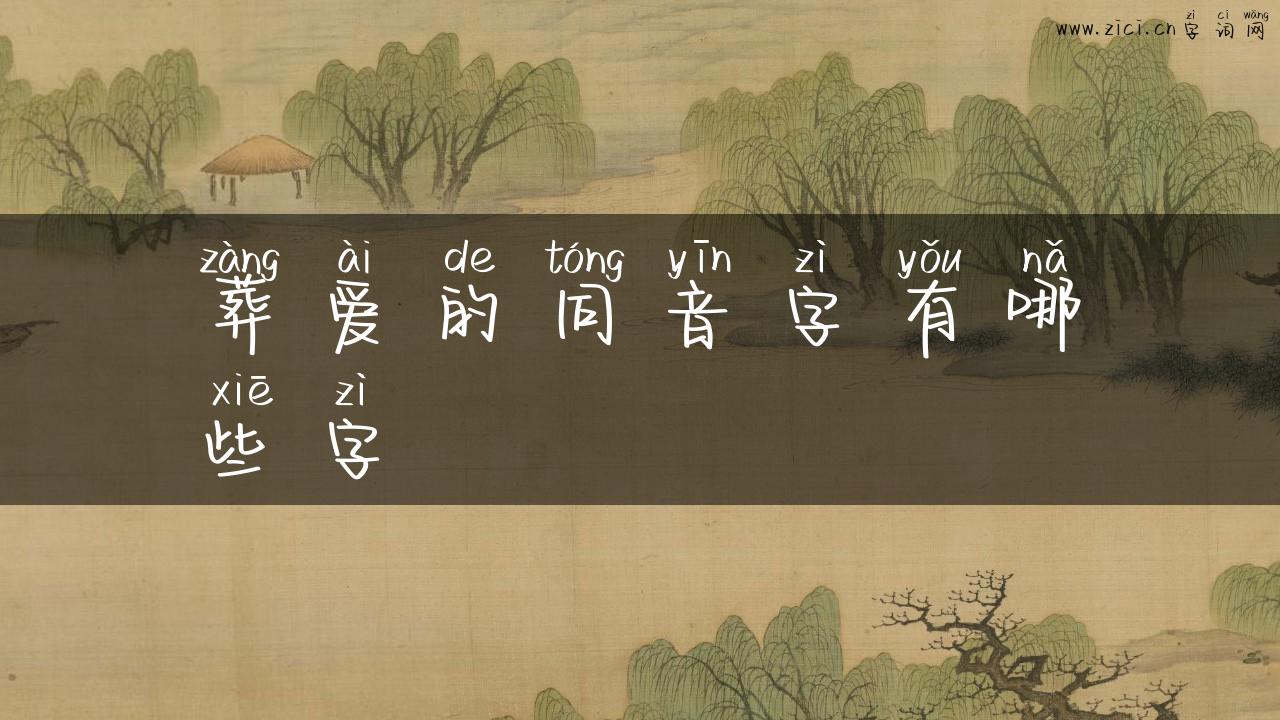 zì cí wǎng
www.zici.cn 字 词 网
zàng ài de tóng yīn zì yǒu nǎ
葬 爱 的 同 音 字 有 哪
xiē zì
些 字